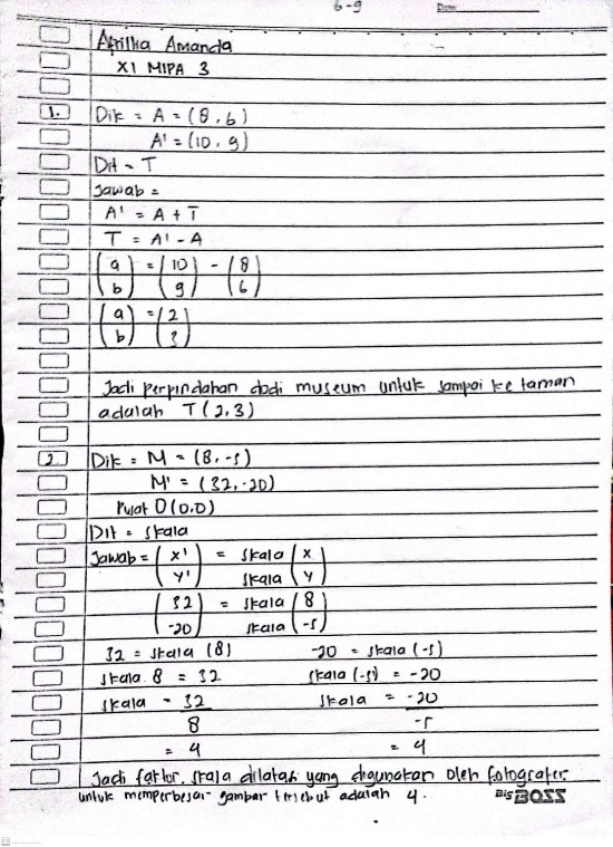 6-9 Date:
Afrilia Amanda
XI MIPA 3
1. Dik = A = (8,6)
A' = (10,9)
Dit = T
Jawab =
A' = A + T
T = A' - A
(a b) = (10 9) - (8 6)
(a b) = (2 3)
Jadi perpindahan dodi museum untuk sampai ke taman
adalah T(2,3)
2. Dik = M = (8,-5)
M' = (32,-20)
Pusat O(0,0)
Dit = skala
Jawab = (x' y') = skala skala (x y)
(32 -20) = skala skala (8 -5)
32 = skala (8) -20 = skala (-5)
skala. 8 = 32 skala (-5) = -20
skala = 32 skala = -20
8 -5
= 4 = 4
Jadi faktor skala dilatasi yang digunakan oleh fotografer
untuk memperbesar gambar tersebut adalah 4.
Big BOSS